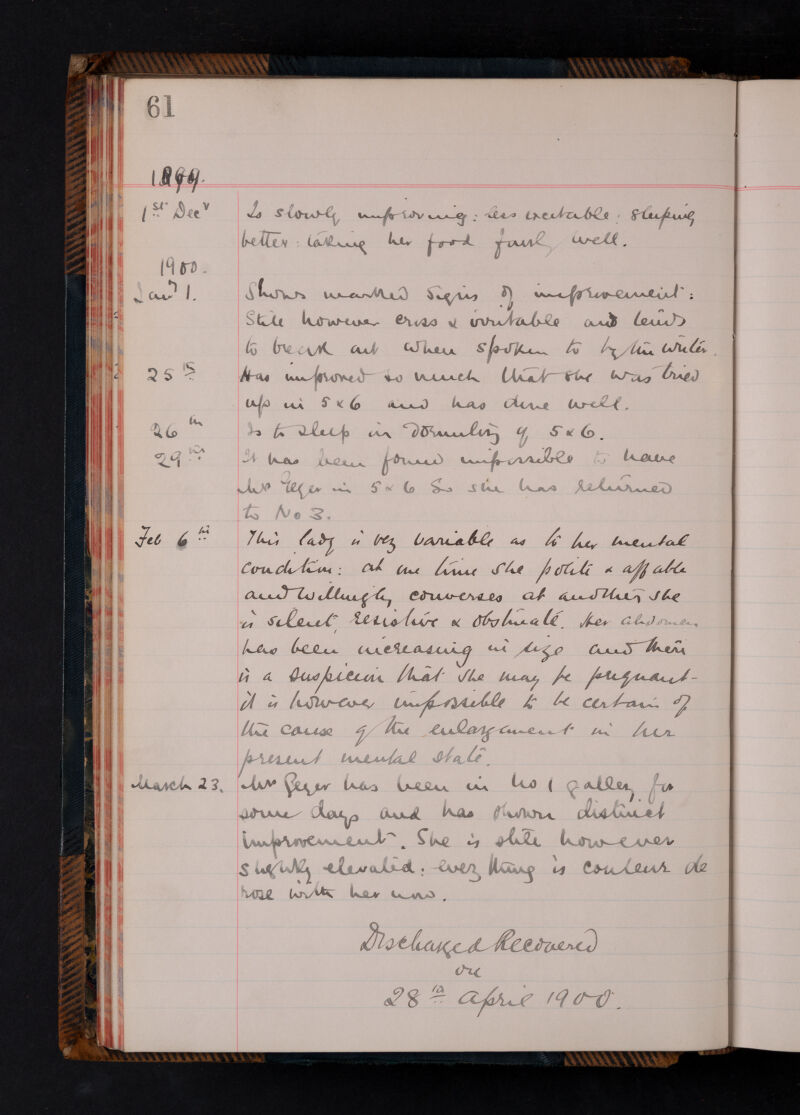 61
1899.
1st Decr Is slowly improving: less excitable: sleeping
better: taking her food fairly well.
1900.
Jany 1. Shows marked signs of improvement:
Still however cross & irritable and tends
to break out when spoken to by the writer.
25th Has improved so much that she was tried
up in 5 & 6 and has done well.
26th Is to sleep in Dormitory of 5 & 6.
29th It has been found impossible to have
Mrs Geyer in 5 & 6 So she has returned
to No 3.
Feb 6th This lady is very variable as to her mental
condition: at one time she polite & affable
and willingly converses at another she
is silent, resistive & obstinate. Her abdomen
has been increasing in size and there
is a suspicion that she may be pregnant -
it is however impossible to be certain of
the cause of the enlargement in her
present mental state.
March 23. Mrs Geyer has been in No 1 gallery for
some days and has shown distinct
improvement. She is still however
slightly elevated: every thing is couleur de
rose with her now.
Discharged Recovered
on
28th April 1900.